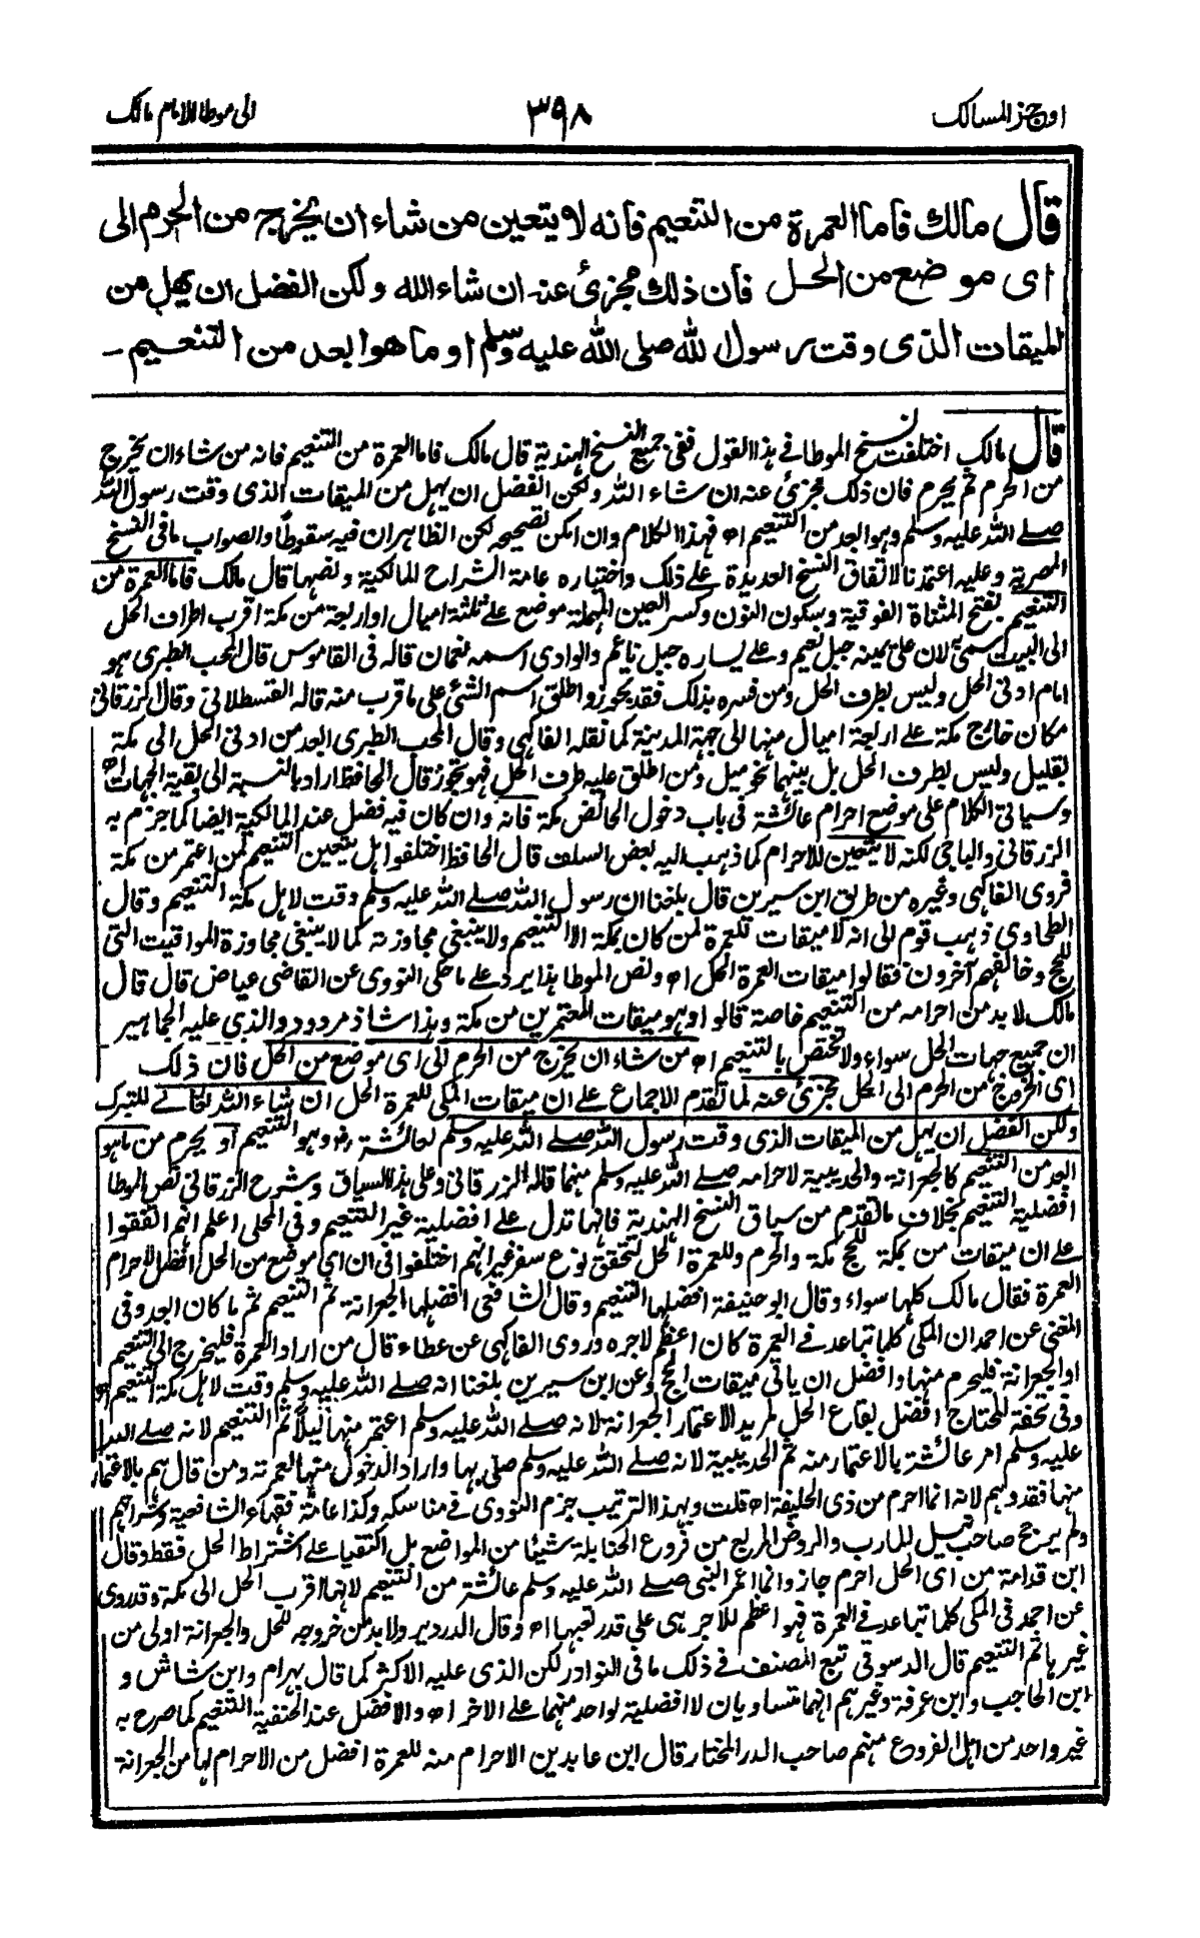 اوجز المسالك
٣٩٨
الى موطا للامام مالك
قال مالك فاما العمرة من التنعيم فانه لا يتعين من شاء ان يخرج من الحرم الى
اى موضع من الحل فان ذلك مجزئ عنه ان شاء الله ولكن الفضل ان يهل من
الميقات الذى وقت رسول الله صلى الله عليه وسلم او ما هو ابعد من التنعيم -
قال مالك اختلفت نسخ الموطا فى هذا القول ففى جميع النسخ الهندية قال مالك فاما العمرة من التنعيم فانه من شاء ان يخرج
من الحرم ثم يحرم فان ذلك مجزئ عنه ان شاء الله ولكن الفضل ان يهل من الميقات الذى وقت رسول الله
صلے الله عليه وسلم وهو ابعد من التنعيم اه فهذا الكلام وان امكن تصحيحه لكن الظاهر ان فيه سقوطا والصواب ما فى النسخ
المصرية وعليه اعتمدنا لاتفاق النسخ العديدة علے ذلك واختياره عامة الشراح المالكية ونصها قال مالك فاما العمرة من
التنعيم بفتح المثناة الفوقية وسكون النون وكسر العين المهملة موضع علے ثلثة اميال او اربعة من مكة اقرب اطراف الحل
الى البيت سمى لان على يمينه جبل نعيم وعلے يساره جبل ناعم والوادى اسمه نعمان قاله فى القاموس قال المحب الطبرى هو
امام ادنى الحل وليس بطرف الحل ومن فسره بذلك فقد تجوز واطلق اسم الشئ على ما قرب منه قاله القسطلانى وقال الزرقانى
مكان خارج مكة علے اربعة اميال منها الى جهة المدينة كما نقله الفاكهى وقال المحب الطبرى ابعد من ادنى الحل الى مكة
بقليل وليس بطرف الحل بل بينهما نحو ميل ومن اطلق عليه طرف الحل فهو تجوز قال الحافظ اراد بالنسبة الى بقية الجهات اه
وسياتى الكلام على موضع احرام عائشة فى باب دخول الحائض مكة فانه وان كان فيه فضل عند المالكية ايضا كما جزم به
الزرقانى والباجى لكنه لا يتعين للاحرام كما ذهب اليه بعض السلف قال الحافظ اختلفوا هل يتعين التنعيم لمن اعتمر من مكة
فروى الفاكهى وغيره من طريق ابن سيرين قال بلغنا ان رسول الله صلے الله عليه وسلم وقت لاهل مكة التنعيم وقال
الطحاوى ذهب قوم الى انه لا ميقات للعمرة لمن كان بمكة الا التنعيم ولا ينبغى مجاوزته كما لا ينبغى مجاوزة المواقيت التى
للحج وخالفهم آخرون فقالوا ميقات العمرة الحل اه ونص الموطا هذا يرد علے ما حكى النووى عن القاضى عياض قال قال
مالك لا بد من احرامه من التنعيم خاصة قالوا وهو ميقات المعتمرين من مكة وهذا شاذ مردود والذي عليه الجماهير
ان جميع جهات الحل سواء ولا تختص بالتنعيم اه من شاء ان يخرج من الحرم الى اى موضع من الحل فان ذلك
اى الخروج من الحرم الى الحل مجزئ عنه لما تقدم الاجماع على ان ميقات المكى للعمرة الحل ان شاء الله تعالے للتبرك
ولكن الفضل ان يهل من الميقات الذى وقت رسول الله صلے الله عليه وسلم لعائشة رض وهو التنعيم او يحرم من ما هو
ابعد من التنعيم كالجعرانة والحديبية لاحرامه صلے الله عليه وسلم منهما قاله الزرقانى وعلى هذا السياق وشروح الزرقانى نص الموطا
افضلية التنعيم بخلاف ما تقدم من سياق النسخ الهندية فانها تدل علے افضلية غير التنعيم وفى المحلى اعلم انهم اتفقوا
علے ان ميقات من بمكة للحج مكة والحرم وللعمرة الحل لتحقق نوع سفر غير انهم اختلفوا فى ان اى موضع من الحل افضل لاحرام
العمرة فقال مالك كلها سواء وقال ابو حنيفة افضلها التنعيم وقال الشافعى افضلها الجعرانة ثم التنعيم ثم ما كان ابعد وفى
المغنى عن احمد ان المكى كلما تباعد فے العمرة كان اعظم لاجره وروى الفاكهى عن عطاء قال من اراد العمرة فليخرج الى التنعيم
او الجعرانة فليحرم منها وافضل ان ياتى ميقات الحج وعن ابن سيرين بلغنا انه صلے الله عليه وسلم وقت لاهل مكة التنعيم اه
وفى تحفة المحتاج افضل بقاع الحل لمريد الاعتمار الجعرانة لانه صلے الله عليه وسلم اعتمر منها ليلا ثم التنعيم لانه صلے الله
عليه وسلم امر عائشة بالاعتمار منه ثم الحديبية لانه صلے الله عليه وسلم صلى بها واراد الدخول منها لعمرته ومن قال هم بالاعتمار
منها فقد وهم لانه انما احرم من ذى الحليفة اه قلت وبهذا الترتيب جزم النووى فے مناسكه وكذا عامة فقهاء الشافعية وشراحهم
ولم يرجح صاحب نيل المارب والروض المربع من فروع الحنابلة شيئا من المواضع بل اكتفيا علے اشتراط الحل فقط وقال
ابن قدامة من اى الحل احرم جاز وانما اعمر النبى صلے الله عليه وسلم عائشة من التنعيم لانها اقرب الحل الى مكة وقد روى
عن احمد فى المكى كلما تباعد فے العمرة فهو اعظم للاجر هى على قدر تعبها اه وقال الدردير ولا بد من خروجه للحل والجعرانة اولى من
غيرها ثم التنعيم قال الدسوقى تبع المصنف فے ذلك ما فى النوادر لكن الذى عليه الاكثر كما قال بهرام وابن شاش و
ابن الحاجب وابن عرفة وغيرهم انهما متساويان لا افضلية لواحد منهما علے الاخر اه والافضل عند الحنفية التنعيم كما صرح به
غير واحد من اهل الفروع منهم صاحب الدر المختار قال ابن عابدين الاحرام منه للعمرة افضل من الاحرام لها من الجعرانة